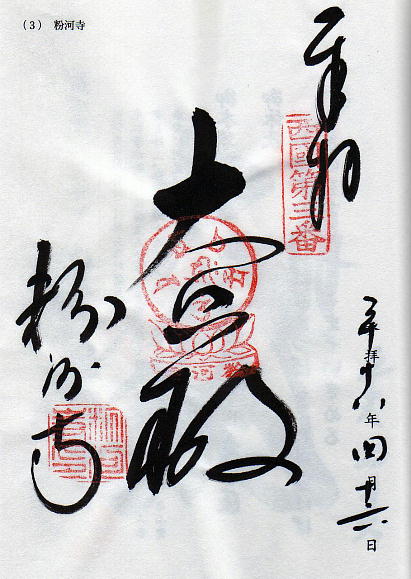 （3） 粉河寺
奉拝
西國第三番
大悲殿
粉河寺
平成十八年四月十六日